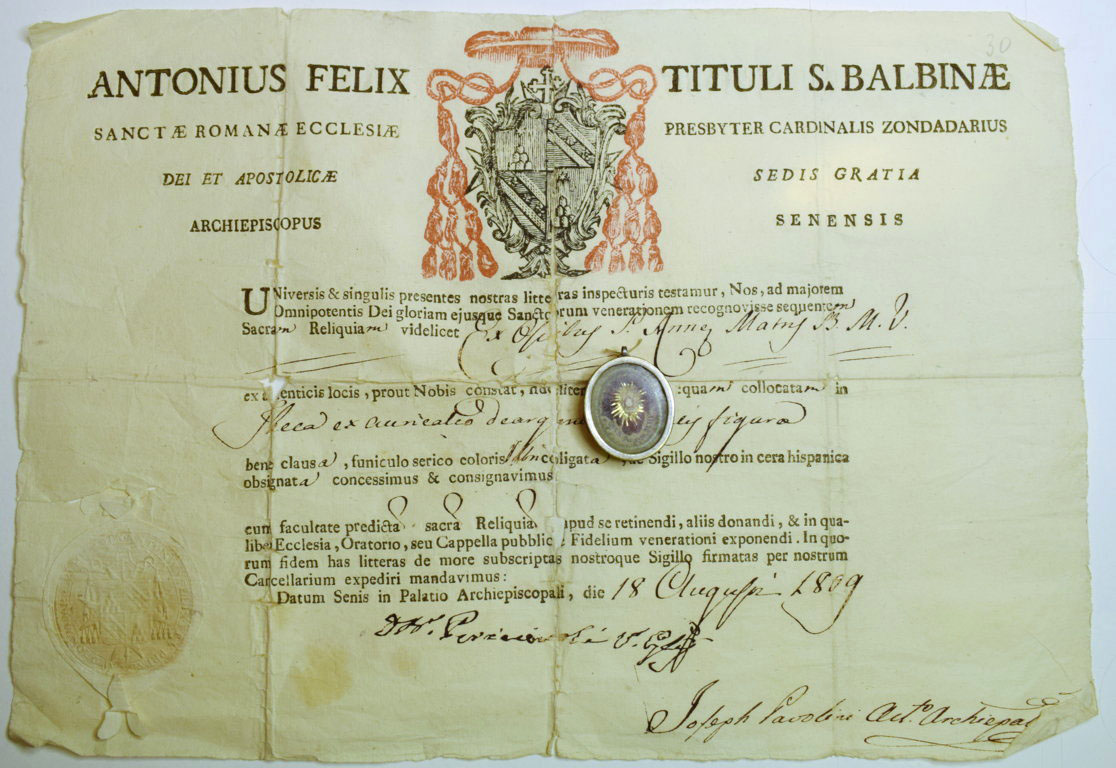 30
ANTONIUS FELIX TITULI S. BALBINÆ
SANCTÆ ROMANÆ ECCLESIÆ PRESBYTER CARDINALIS ZONDADARIUS
DEI ET APOSTOLICÆ SEDIS GRATIA
ARCHIEPISCOPUS SENENSIS
UNiversis & singulis presentes nostras litteras inspecturis testamur, Nos, ad majorem
Omnipotentis Dei gloriam ejusque Sanctorum venerationem recognovisse sequentem
Sacram Reliquiam videlicet Ex S. Annæ Matris B. M. V.
ex authenticis locis, prout Nobis constat, fideliter equam collocatam in
Theca ex auricalco dearg figura
bene clausa, funiculo serico coloris colligata, ac Sigillo nostro in cera hispanica
obsignata concessimus & consignavimus
cum facultate predicta sacra Reliquia apud se retinendi, aliis donandi, & in qua-
libet Ecclesia, Oratorio, seu Cappella pubblice Fidelium venerationi exponendi. In quo-
rum fidem has litteras de more subscriptas nostroque Sigillo firmatas per nostrum
Cancellarium expediri mandavimus:
Datum Senis in Palatio Archiepiscopali, die 18 Augusti 1809
V. G.
Joseph Pavolini Archiepal